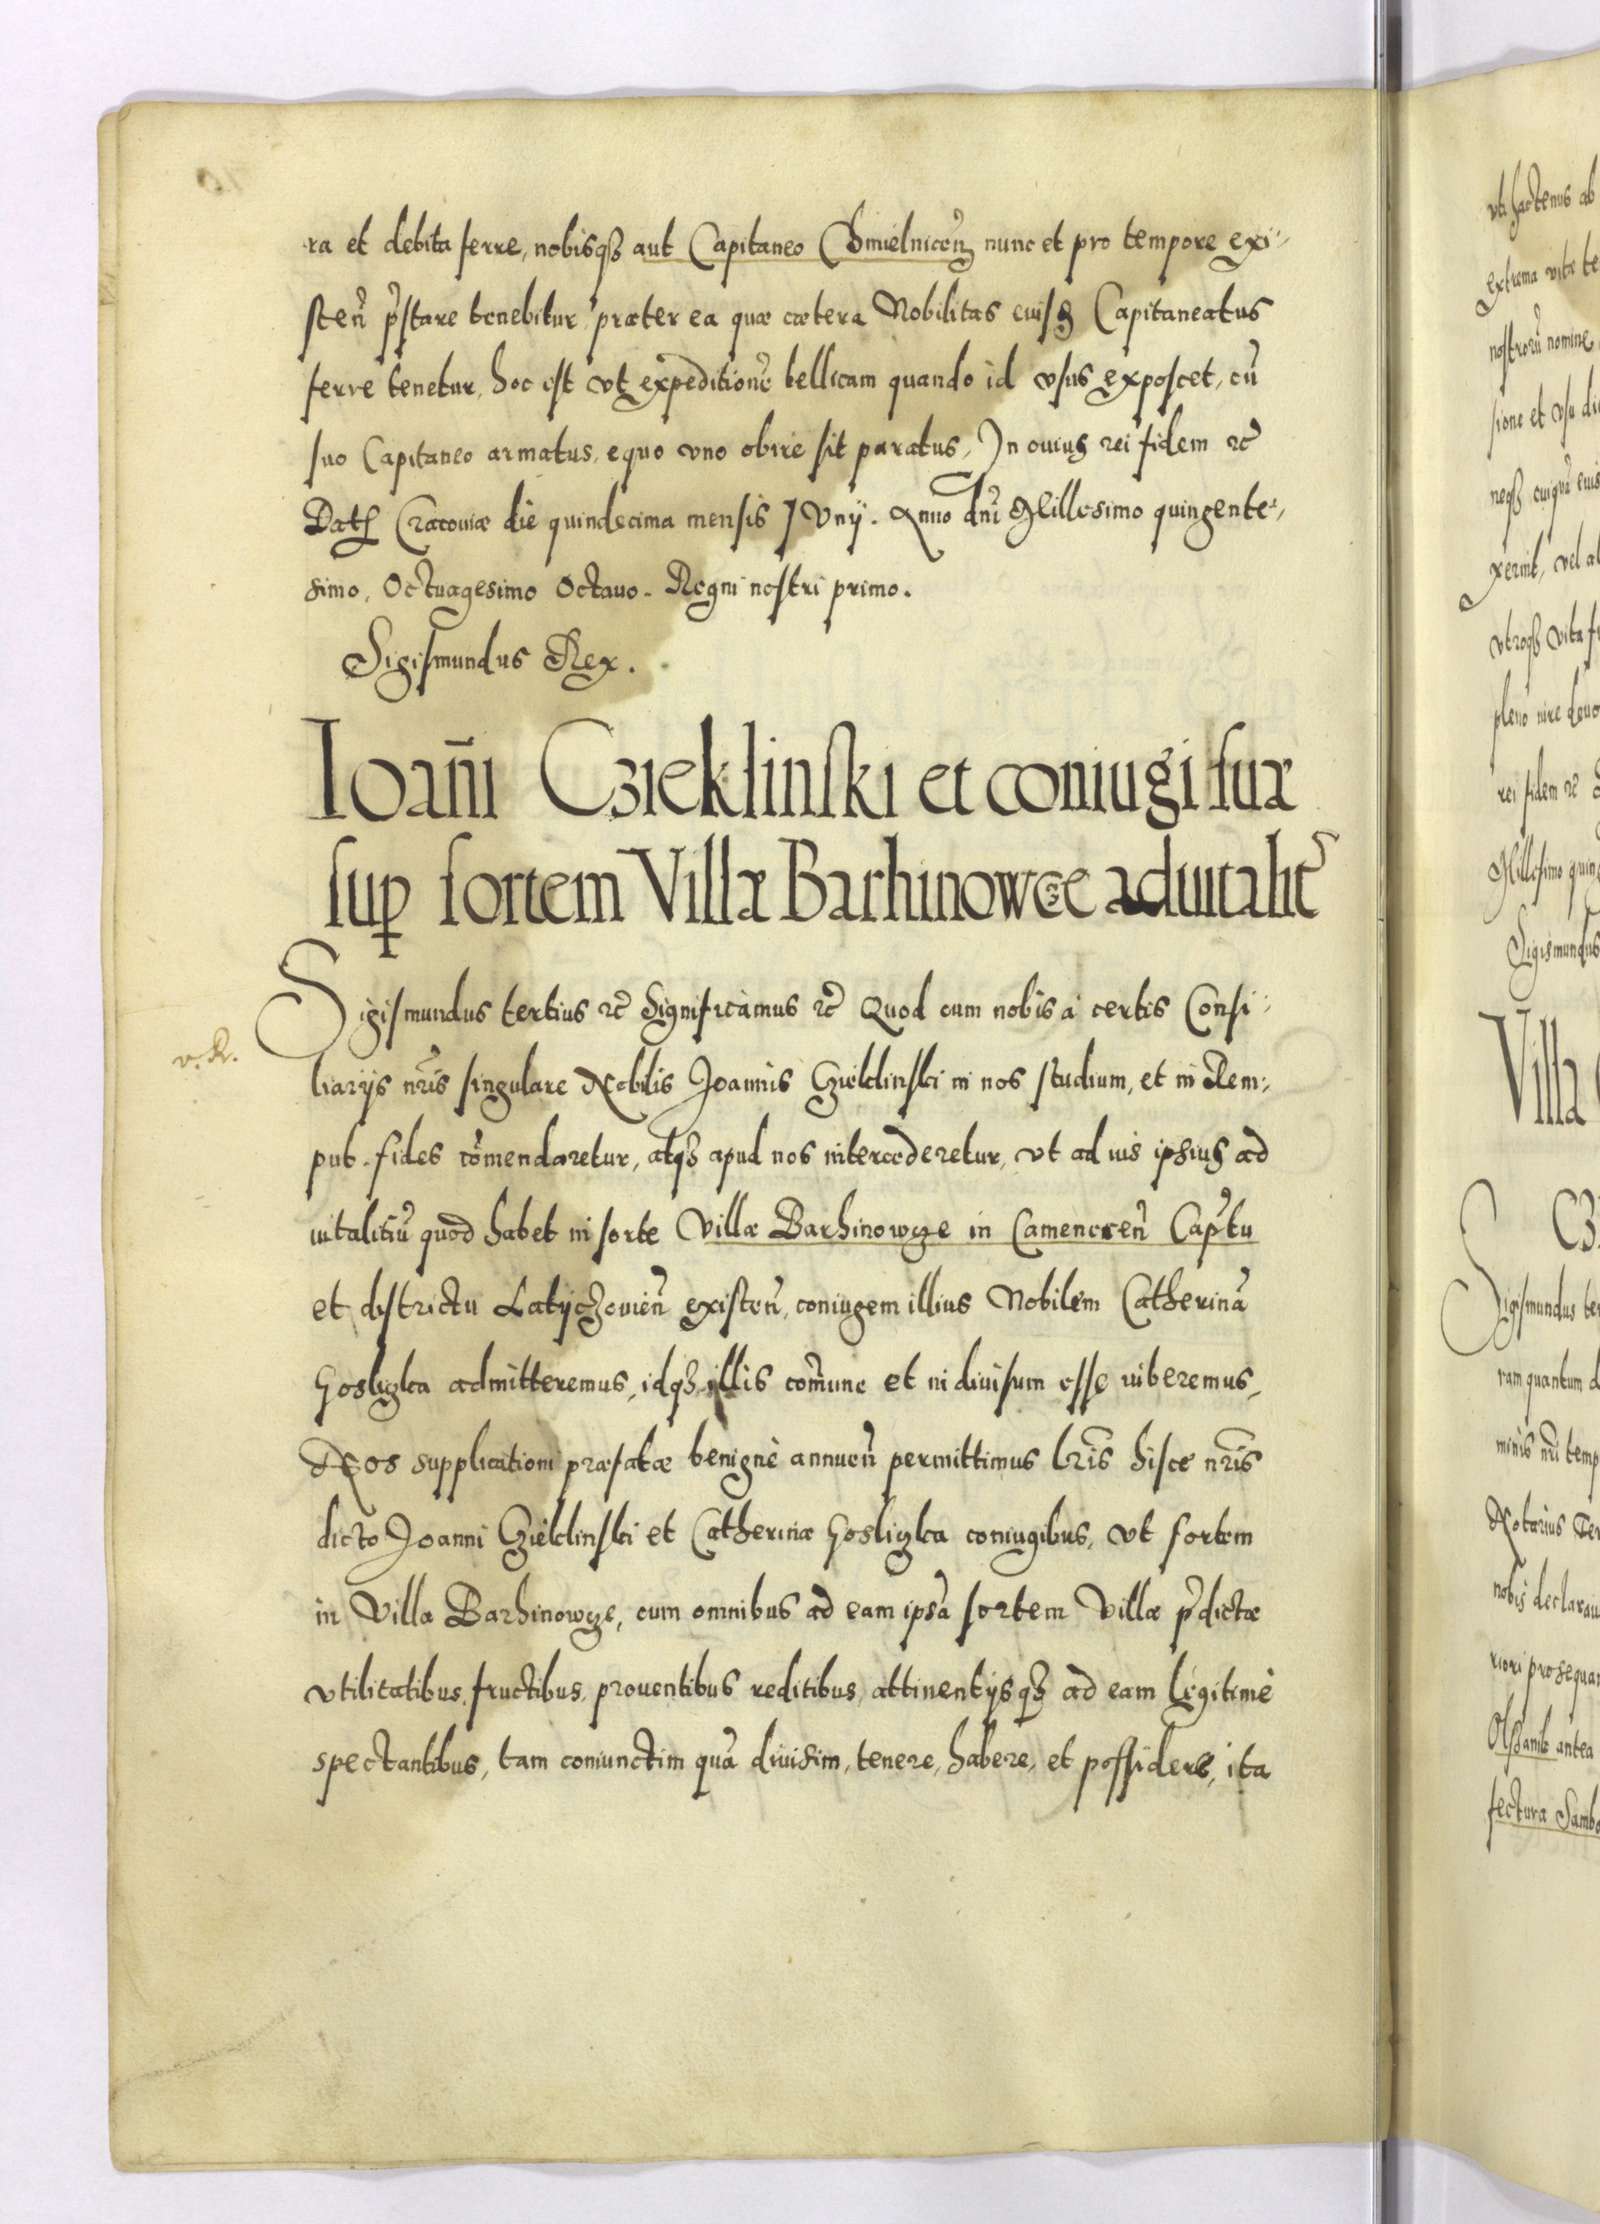 ra et debita ferre, nobisq3 aut Capitaneo Chmielnicen̄ nunc et pro tempore exi-
sten̄ p̄stare tenebitur, præter ea quæ cætera Nobilitas eiusd Capitaneatus
ferre tenetur, hoc est vt expeditionē bellicam quando id vsus exposcet, cū
suo Capitaneo armatus, equo vno obire sit paratus, In cuius rei fidem ꝛc̄
Dat Cracouiæ die quindecima mensis Iunij. Anno dn̄i Millesimo quingente-
simo, Octuagesimo Octauo. Regni nostri primo.
Sigismundus Rex.
Ioan̄i Czieklinski et coniugi suæ
sup̱ sortem Villæ Barhinowcze aduitalit̄
Sigismundus tertius ꝛc̄ Significamus ꝛc̄ Quod cum nobis à certis Consi-
v. R.
liarijs nr̄is singulare Nobilis Joannis Czieklinski in nos studium, et in Rem-
pub. fides com̄endaretur, atq3 apud nos intercederetur, vt ad ius ipsius ad
uitalitiū quod habet in sorte Villæ Barhinowcze in Camenecen̄ Cap̄tu
et districtu Latyczouien̄ existen̄, coniugem illius Nobilem Catherinā
Goslizka admitteremus, idq3 illis com̄une et indiuisum esse iuberemus,
Nos supplicationi præfatæ benignè annuen̄ permittimus lr̄is hisce nr̄is
dicto Joanni Czieklinski et Catherinæ Goslizka coniugibus, vt sortem
in Villa Barhinowcze, cum omnibus ad eam ipsā sortem Villæ p̄dictæ
vtilitatibus, fructibus, prouentibus reditibus, attinentijsq3 ad eam légitimè
spectantibus, tam coniunctim quā diuisim, tenere, habere, et possidere, ita
vti hactenus ab
extrema vitæ te
nostrorū nomine
sione et vsu
neq3 cuiquā
xerint, vel al
vtroq3 vita
pleno iure
rei fidem ꝛc̄
Millesimo quin
Sigismundus
Villa
Sigismundus ter
ram quantum d
minis nr̄i temp
Notarius Ter
nobis declarau
riori prosequa
antea
fectura Sambo